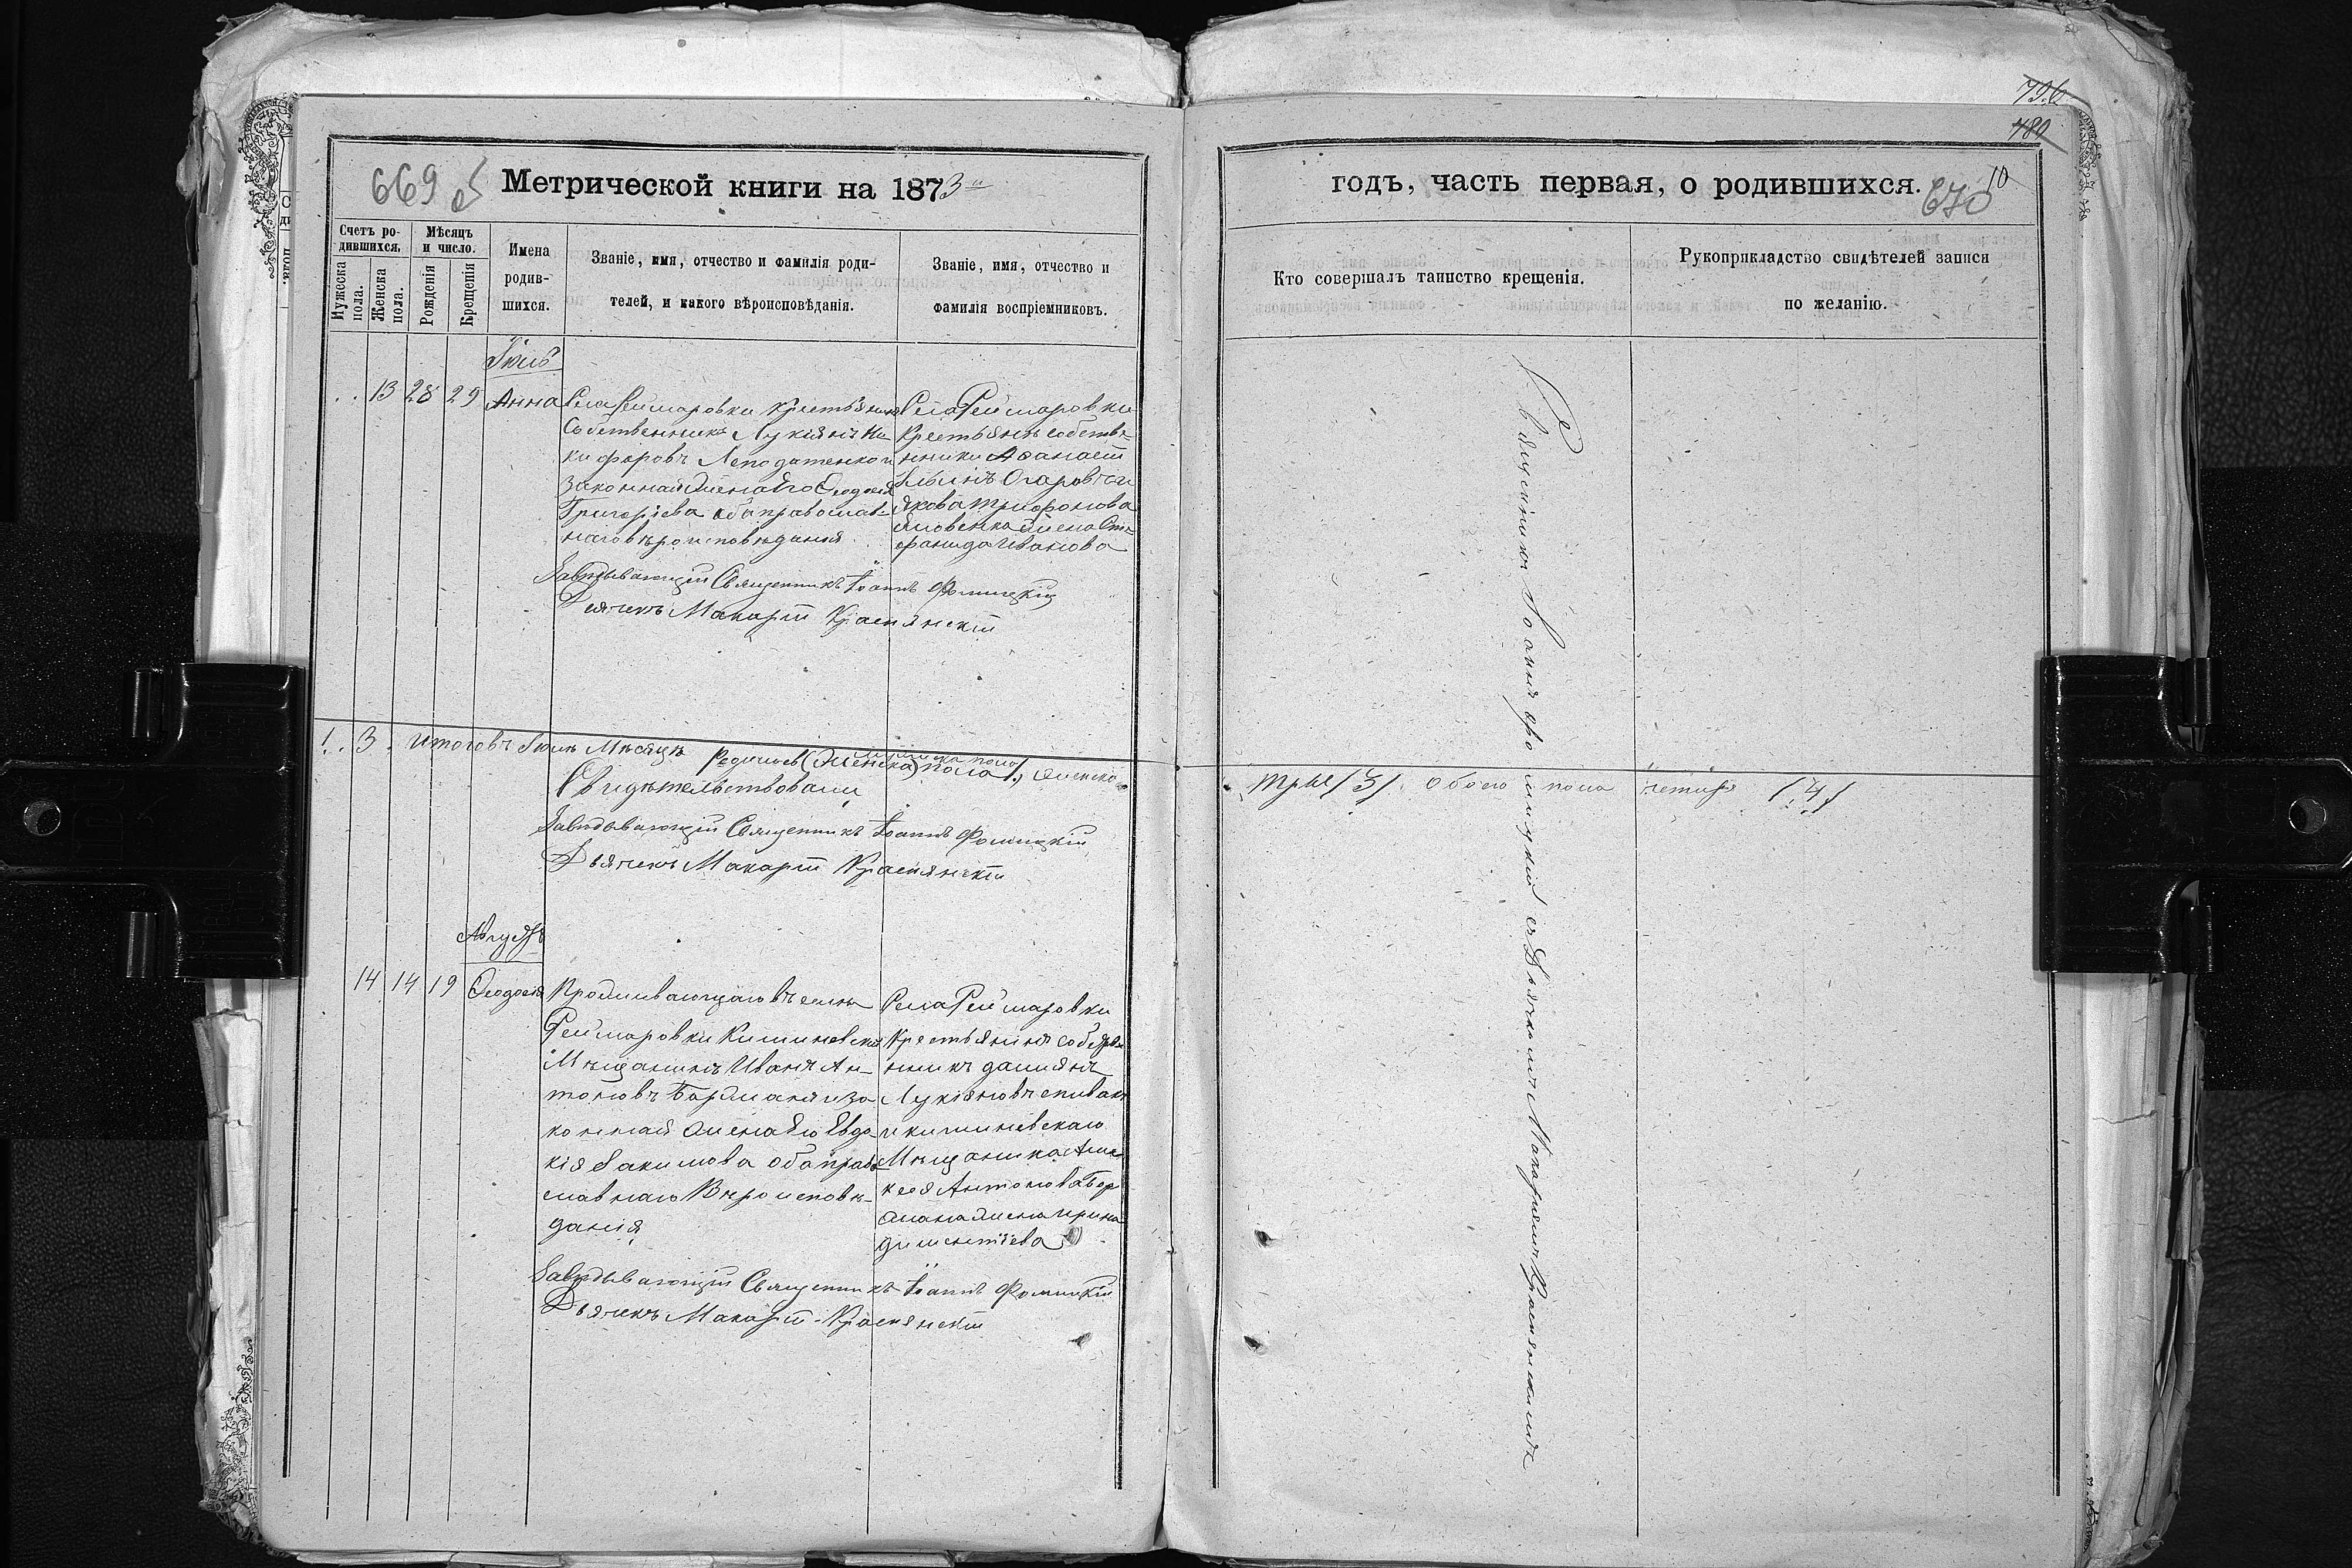 796
480
669 об
Метрической книги на 1873й
годъ, часть первая, о родившихся.
10
670
Счетъ родившихся.
Мужеска пола.
Женска пола.
Мѣсяцъ и число.
Рожденія
Крещенія
Имена родив-
шихся.
Званіе, имя, отчество и фамилія роди-
телей, и какого вѣроисповѣданія.
Званіе, имя, отчество и
фамилія воспріемниковъ.
Кто совершалъ таинство крещенія.
Рукоприкладство свидѣтелей записи
по желанію.
Іюль
13 28 29 Анна
Села Реймаровки Крестьянинъ
Собственникъ Лукіянъ Ни-
кифоровъ Неподатенко и
законная жена Его Ѳеодосія
Григоріева оба православ-
наго вѣроисповѣданія
Села Реймаровки
Крестьянъ собстве-
нники Аѳанасій
и
Якова Трифонова
Яковенка жена Сте-
фанида Иванова
Завѣдывающій Священникъ Іоаннъ Фомицкій
Дьячекъ Макарій Краснянскій
1. 3. Итого въ Іюлѣ Мѣсяцѣ Родилось мужеска пола (Женска) пола 1, женска
три /3/. обоего пола четыре /4./
Свидѣтельствовали
Завѣдывающій Священникъ Іоаннъ Фомицкій
Дьячекъ Макарій Краснянскій
Августъ
14 14 19 Ѳеодосія
Проживающаго въ селѣ
Реймаровки Кишиневскій
Мѣщанинъ Иванъ Ан-
тоновъ Боржаня и за
конная жена Его Евдо-
кія Іакимова оба право
славнаго Вѣроисповѣ-
данія
Села Реймаровки
Крестьянинъ собстве
нникъ Даміянъ
Лукіяновъ Спивакъ
и кишиневскаго
Мѣщанина Алек
сея Антонова Бор
жана жена Ирина
Дементіева
Завѣдывающій Священникъ Іоаннъ Фомицкій
Дьячекъ Макарій Краснянскій
Священникъ Іоаннъ Фомицкій съ Дьячкомъ Макаріемъ Краснянскимъ